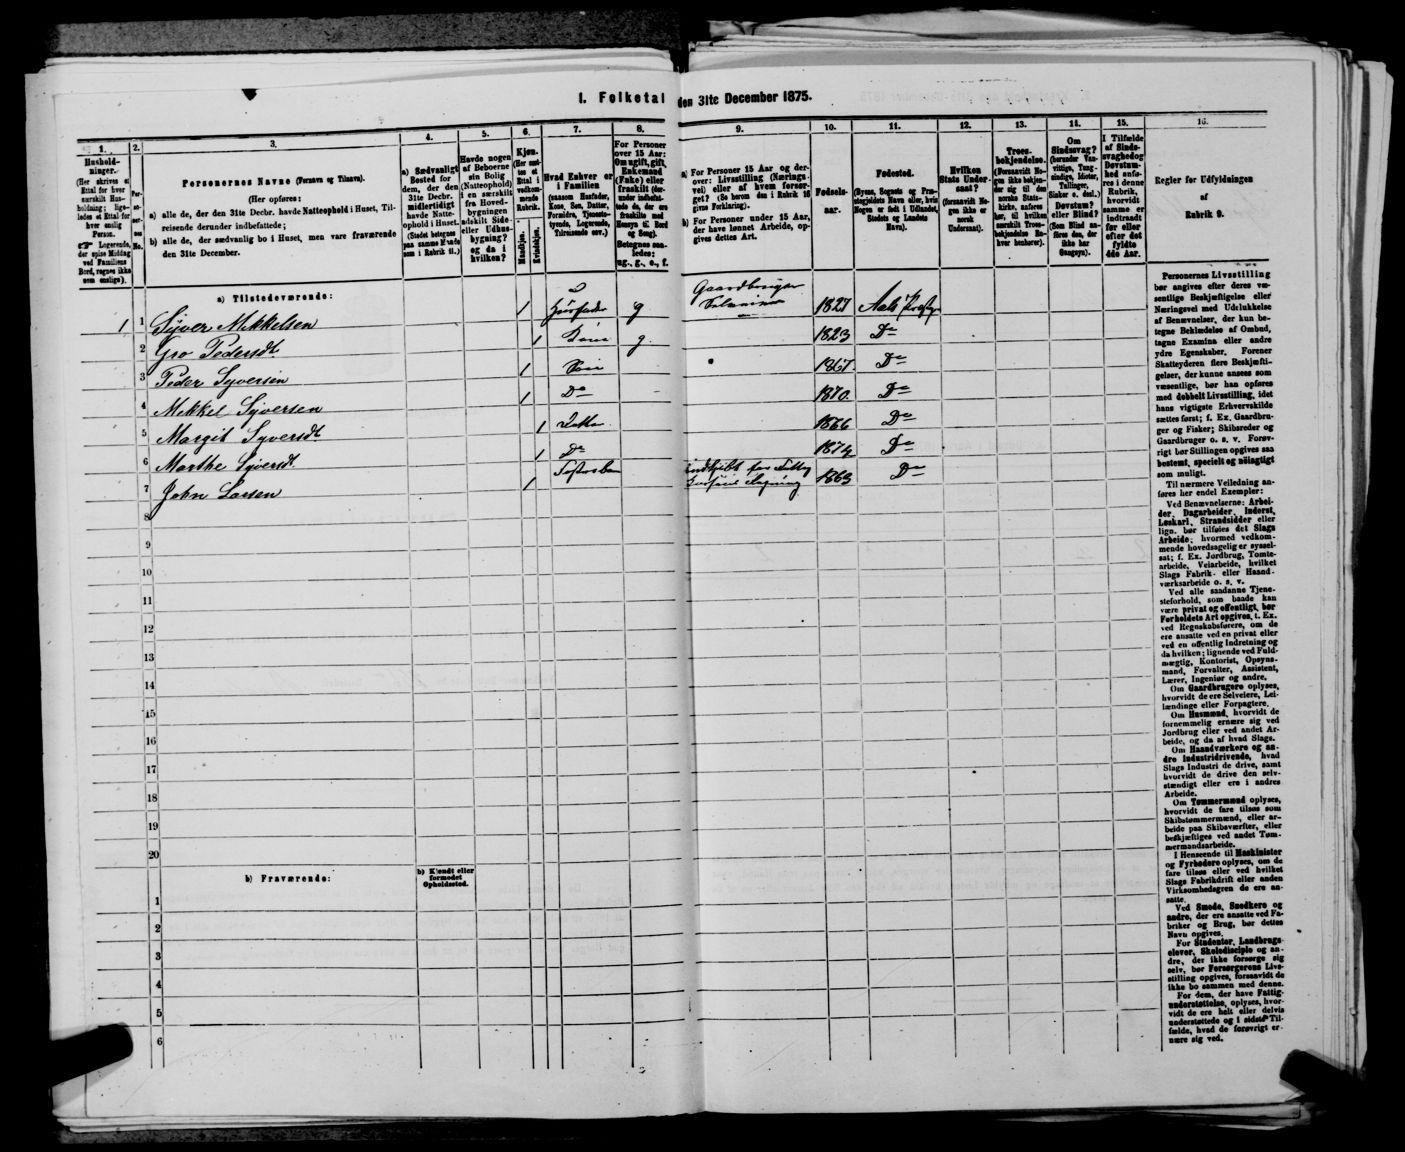 I. Folketal den 31te December 1875.
1.
Hushold-
ninger.
(Her skrives et
Ettal for hver
særskilt Hus-
holdning; lige-
ledes et Ettal for
hver enslig
Person.
Logerende,
der spise Middag
ved Familiens
Bord, regnes ikke
som enslige).
2.
Per-
so-
ner-
nes
No.
3.
Personernes Navne (Fornavn og Tilnavn).
(Her opføres:
a) alle de, der den 31te Decbr. havde Natteophold i Huset, Til-
reisende derunder indbefattede;
b) alle de, der sædvanlig bo i Huset, men vare fraværende
den 31te December.
4.
a) Sædvanligt
Bosted for
dem, der den
31te Decbr.
midlertidigt
havde Natte-
ophold i Huset.
(Stedet betegnes
paa samme Maade
som i Rubrik 11.)
5.
Havde nogen
af Beboerne
sin Bolig
(Natteophold)
i en særskilt
fra Hoved-
bygningen
adskilt Side-
eller Udhus-
bygning?
og da i
hvilken?
6.
Kjøn.
(Her sæt-
tes et
Ettal i
vedkom-
mende
Rubrik.
Mandkjøn.
Kvindekjøn.
7.
Hvad Enhver er
i Familien
(saasom Husfader,
Kone, Søn, Datter,
Forældre, Tjeneste-
tyende, Logerende,
Tilreisende osv.)
8.
For Personer
over 15 Aar:
Om ugift, gift,
Enkemand
(Enke) eller
fraskilt (der-
under indbefat-
tede de, der ere
fraskilte med
Hensyn til Bord
og Seng).
Betegnes saa-
ledes:
ug., g., e., f.
9.
a) For Personer 15 Aar og der-
over: Livsstilling (Nærings-
vei) eller af hvem forsør-
get? (Se herom den i Rubrik 16
givne Forklaring).
b) For Personer under 15 Aar,
der have lønnet Arbeide, op-
gives dettes Art.
10.
Fødsels-
aar.
11.
Fødested.
(Byens, Sognets og Præ-
stegjeldets Navn eller, hvis
Nogen er født i Udlandet,
Stedets og Landets
Navn).
12.
Hvilken
Stats Under-
saat?
(forsaavidt No-
gen ikke er
norsk
Undersaat).
13.
Troes-
bekjendelse.
(Forsaavidt No-
gen ikke bekjen-
der sig til den
norske Stats-
kirke, anføres
her, til hvilken
særskilt Troes-
bekjendelse En-
hver henhører).
14.
Om
Sindssvag?
(herunder Van-
vittige, Tung-
sindige, Idioter,
Tullinger,
Sinker o. desl.)
Døvstum?
eller Blind?
(Som Blind an-
føres den, der
ikke har
Gangsyn).
15.
I Tilfælde
af Sinds-
svaghed og
Døvstum-
hed anfø-
res i denne
Rubrik,
hvorvidt
samme er
indtraadt
før eller
efter det
fyldte
4de Aar.
16.
Regler for Udfyldningen
af
Rubrik 9.
a) Tilstedeværende:
1 1 Syver Mikkelsen 1 Husfader g Gaardbruger Selveier 1821 Aals Prstgj
2 Gro Pedersdt 1 Kone g 1823 Do
3 Peder Syversen 1 Søn 1867 Do
4 Mikkel Syversen 1 Do 1870 Do
5 Margit Syversdt 1 Datter 1866 Do
6 Marthe Syversdt 1 Do 1874 Do
7 John Larsen 1 1863 Do
8
9
10
11
12
13
14
15
16
17
18
19
20
b) Fraværende:
b) Kjendt eller
formodet
Opholdssted.
1
2
3
4
5
6
Personernes Livsstilling
bør angives efter deres væ-
sentlige Beskjæftigelse eller
Næringsvei med Udelukkelse
af Benævnelser, der kun be-
tegne Beklædelse af Ombud,
tagne Examina eller andre
ydre Egenskaber. Forener
Skatteyderen flere Beskjæfti-
gelser, der kunne ansees som
væsentlige, bør han opføres
med dobbelt Livsstilling, idet
hans vigtigste Erhvervskilde
sættes først; f. Ex. Gaardbru-
ger og Fisker; Skibsreder og
Gaardbruger o. s. v. Forøv-
rigt bør Stillingen opgives saa
bestemt, specielt og nøiagtigt
som muligt.
Til nærmere Veiledning an-
føres her endel Exempler:
Ved Benævnelserne: Arbei-
der, Dagarbeider, Inderst,
Løskarl, Strandsidder eller
lign. bør tilføies det Slags
Arbeide; hvormed vedkom-
mende hovedsagelig er syssel-
sat; f. Ex. Jordbrug, Tomte-
arbeide, Veiarbeide, hvilket
Slags Fabrik- eller Haand-
værksarbeide o. s. v.
Ved alle saadanne Tjene-
steforhold, som baade kan
være privat og offentligt, bør
Forholdets Art opgives, f. Ex.
ved Regnskabsførere, om de
ere ansatte ved en privat eller
ved en offentlig Indretning og
da hvilken; lignende ved Fuld-
mægtig, Kontorist, Opsyns-
mand, Forvalter, Assistent,
Lærer, Ingeniør og andre.
Om Gaardbrugere oplyses,
hvorvidt de ere Selveiere, Lei-
lændinge eller Forpagtere.
Om Husmænd, hvorvidt de
fornemmelig ernære sig ved
Jordbrug eller ved andet Ar-
beide, og da af hvad Slags.
Om Haandværkere og an-
dre Industridrivende, hvad
Slags Industri de drive, samt
hvorvidt de drive den selv-
stændigt eller ere i andres
Arbeide.
Om Tømmermænd oplyses,
hvorvidt de fare tilsøs som
Skibstømmermænd, eller ar-
beide paa Skibsværfter, eller
beskjæftiges ved andet Tøm-
mermandsarbeide.
I Henseende til Maskinister
og Fyrbødere oplyses, om de
fare tilsøs eller ved hvilket
Slags Fabrikdrift eller anden
Virksomhedsgren de ere an-
satte.
Ved Smede, Snedkere og
andre, der ere ansatte ved Fa-
briker og Brug, bør dettes
Navn opgives.
For Studenter, Landbrugs-
elever, Skoledisciple og an-
dre, der ikke forsørge sig
selv, bør Forsørgerens Livs-
stilling opgives, forsaavidt de
ikke bo sammen med denne.
For dem, der have Fattig-
understøttelse, oplyses, hvor-
vidt de ere helt eller delvis
understøttede og i sidste Til-
fælde, hvad de forøvrigt er-
nære sig ved.